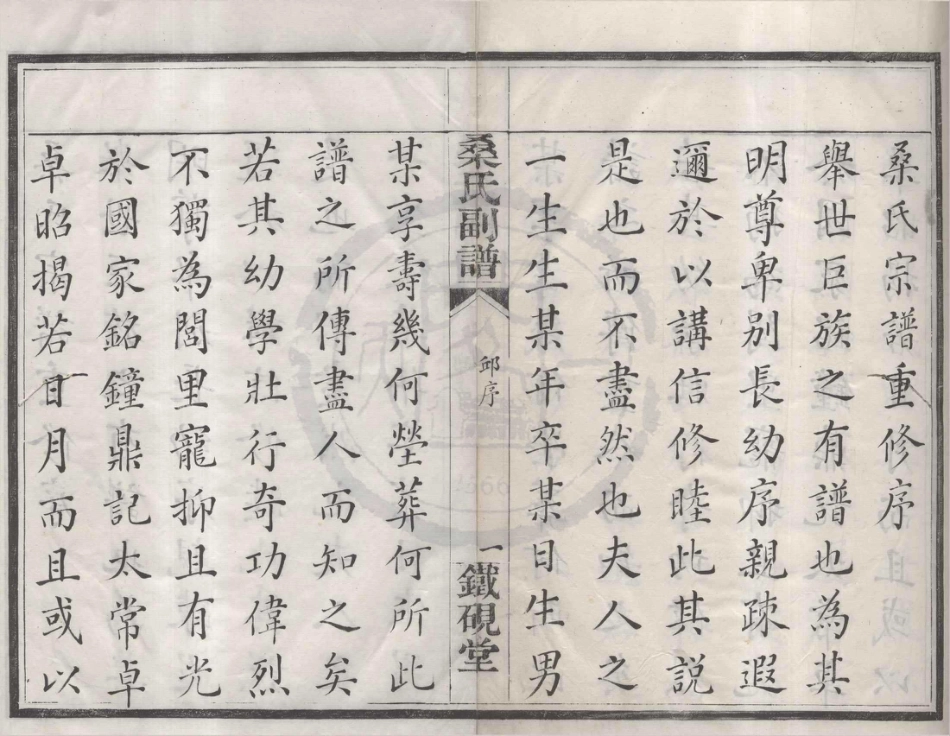 桑氏宗譜重修序
舉世巨族之有譜也為其
明尊卑别長幼序親疎遐
邇於以講信修睦此其說
是也而不盡然也夫人之
一生生某年卒某日生男
桑氏副譜
邱序
一
鐵硯堂
某享壽幾何塋葬何所此
譜之所傳盡人而知之矣
若其幼學壯行奇功偉烈
不獨為閭里寵抑且有光
於國家銘鐘鼎記太常卓
卓昭揭若日月而且或以